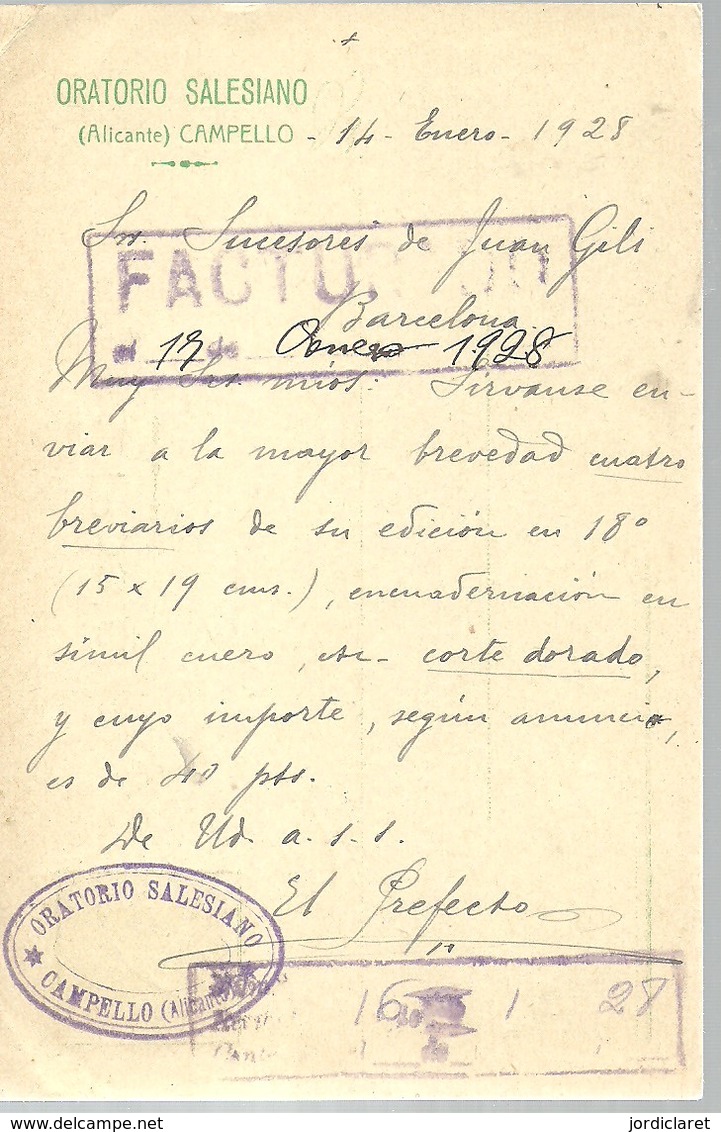 ORATORIO SALESIANO
(Alicante) CAMPELLO - 14 - Enero - 1928
Srs. Sucesores de Juan Gili
FACTURADO
Barcelona
el 17 de Enero 1928
Muy Srs. mios: Sirvanse en-
viar a la mayor brevedad cuatro
breviarios de su edición en 18º
(15 x 19 cms.), encuadernación en
simil cuero, corte dorado,
y cuyo importe, según anuncio,
es de 40 pts.
De Ud. a. s. s.
El Prefecto
ORATORIO SALESIANO
CAMPELLO (Alicante)
16 1 28
de
delcampe.net
jordiclaret